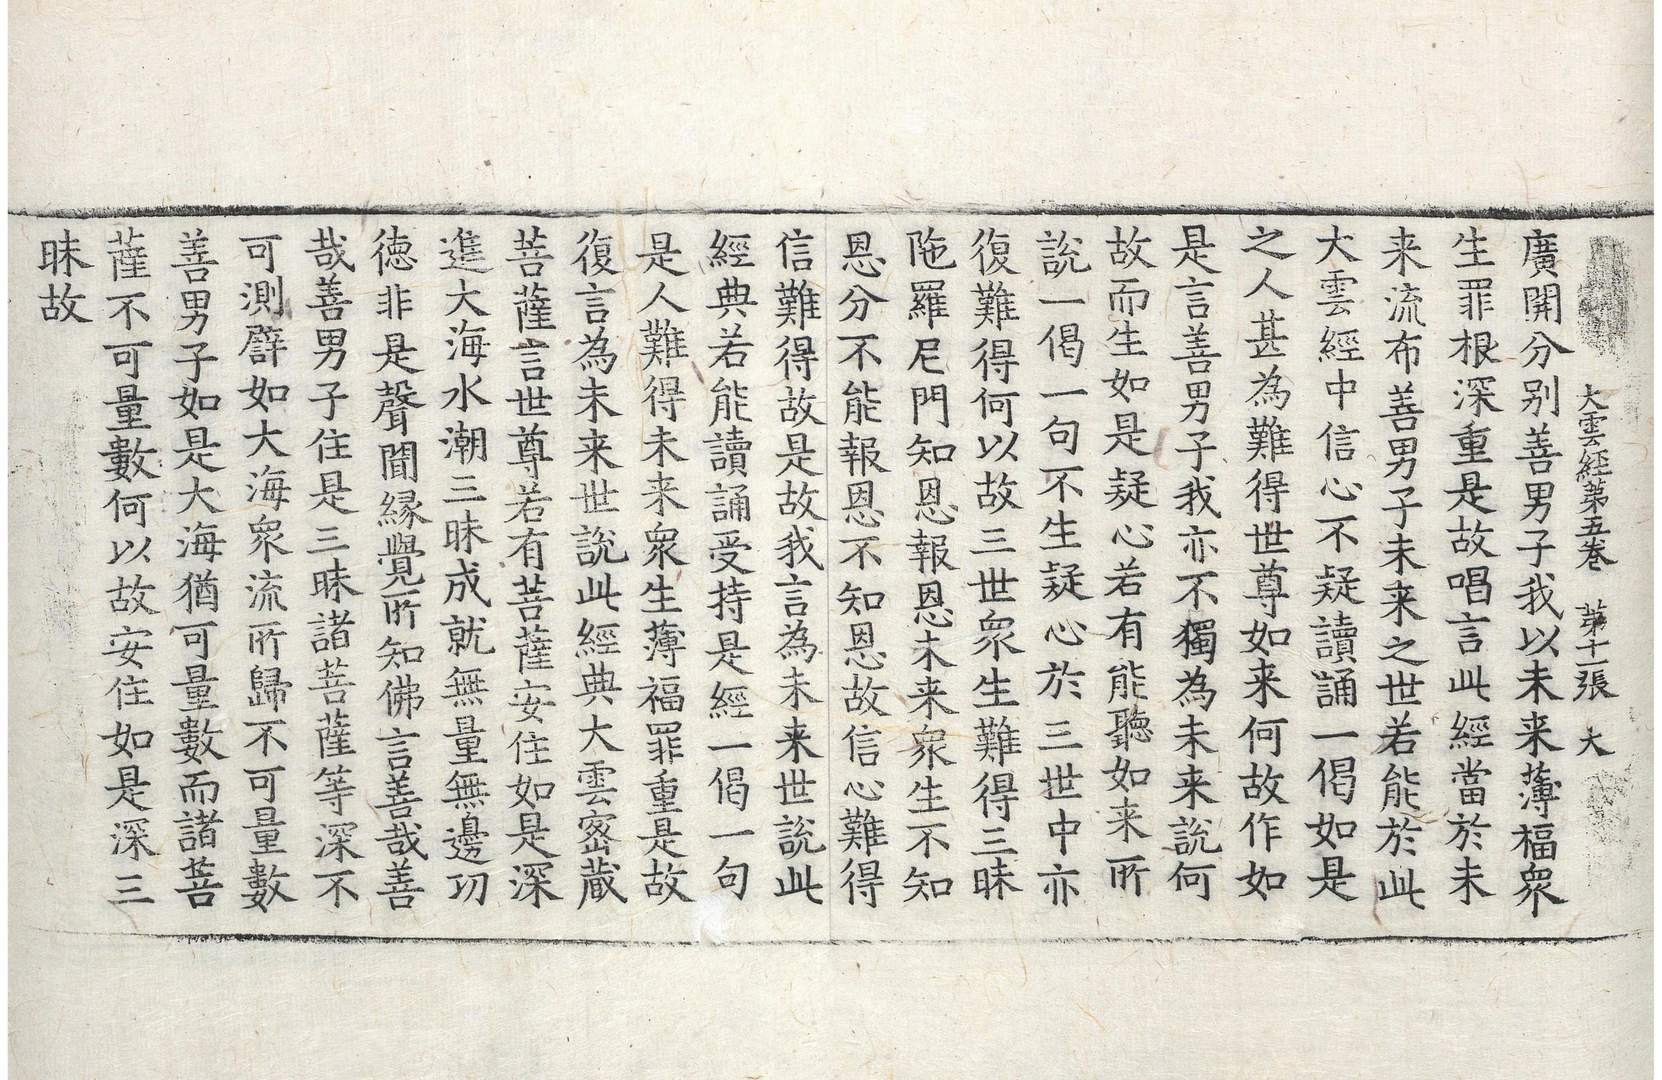 大雲経第五巻　第十二張　大
廣開分別善男子我以未来薄福衆
生罪根深重是故唱言此經當於未
来流布善男子未来之世若能於此
大雲經中信心不疑讀誦一偈如是
之人甚為難得世尊如来何故作如
是言善男子我亦不獨為未来說何
故而生如是疑心若有能聽如来所
說一偈一句不生疑心於三世中亦
復難得何以故三世衆生難得三昧
陁羅尼門知恩報恩未来衆生不知
恩分不能報恩不知恩故信心難得
信難得故是故我言為未来世說此
經典若能讀誦受持是經一偈一句
是人難得未来衆生薄福罪重是故
復言為未来世說此經典大雲密蔵
菩薩言世尊若有菩薩安住如是深
進大海水潮三昧成就無量無邊功
德非是聲聞縁覺所知佛言善哉善
哉善男子住是三昧諸菩薩等深不
可測譬如大海衆流所歸不可量數
善男子如是大海猶可量數而諸菩
薩不可量數何以故安住如是深三
昧故